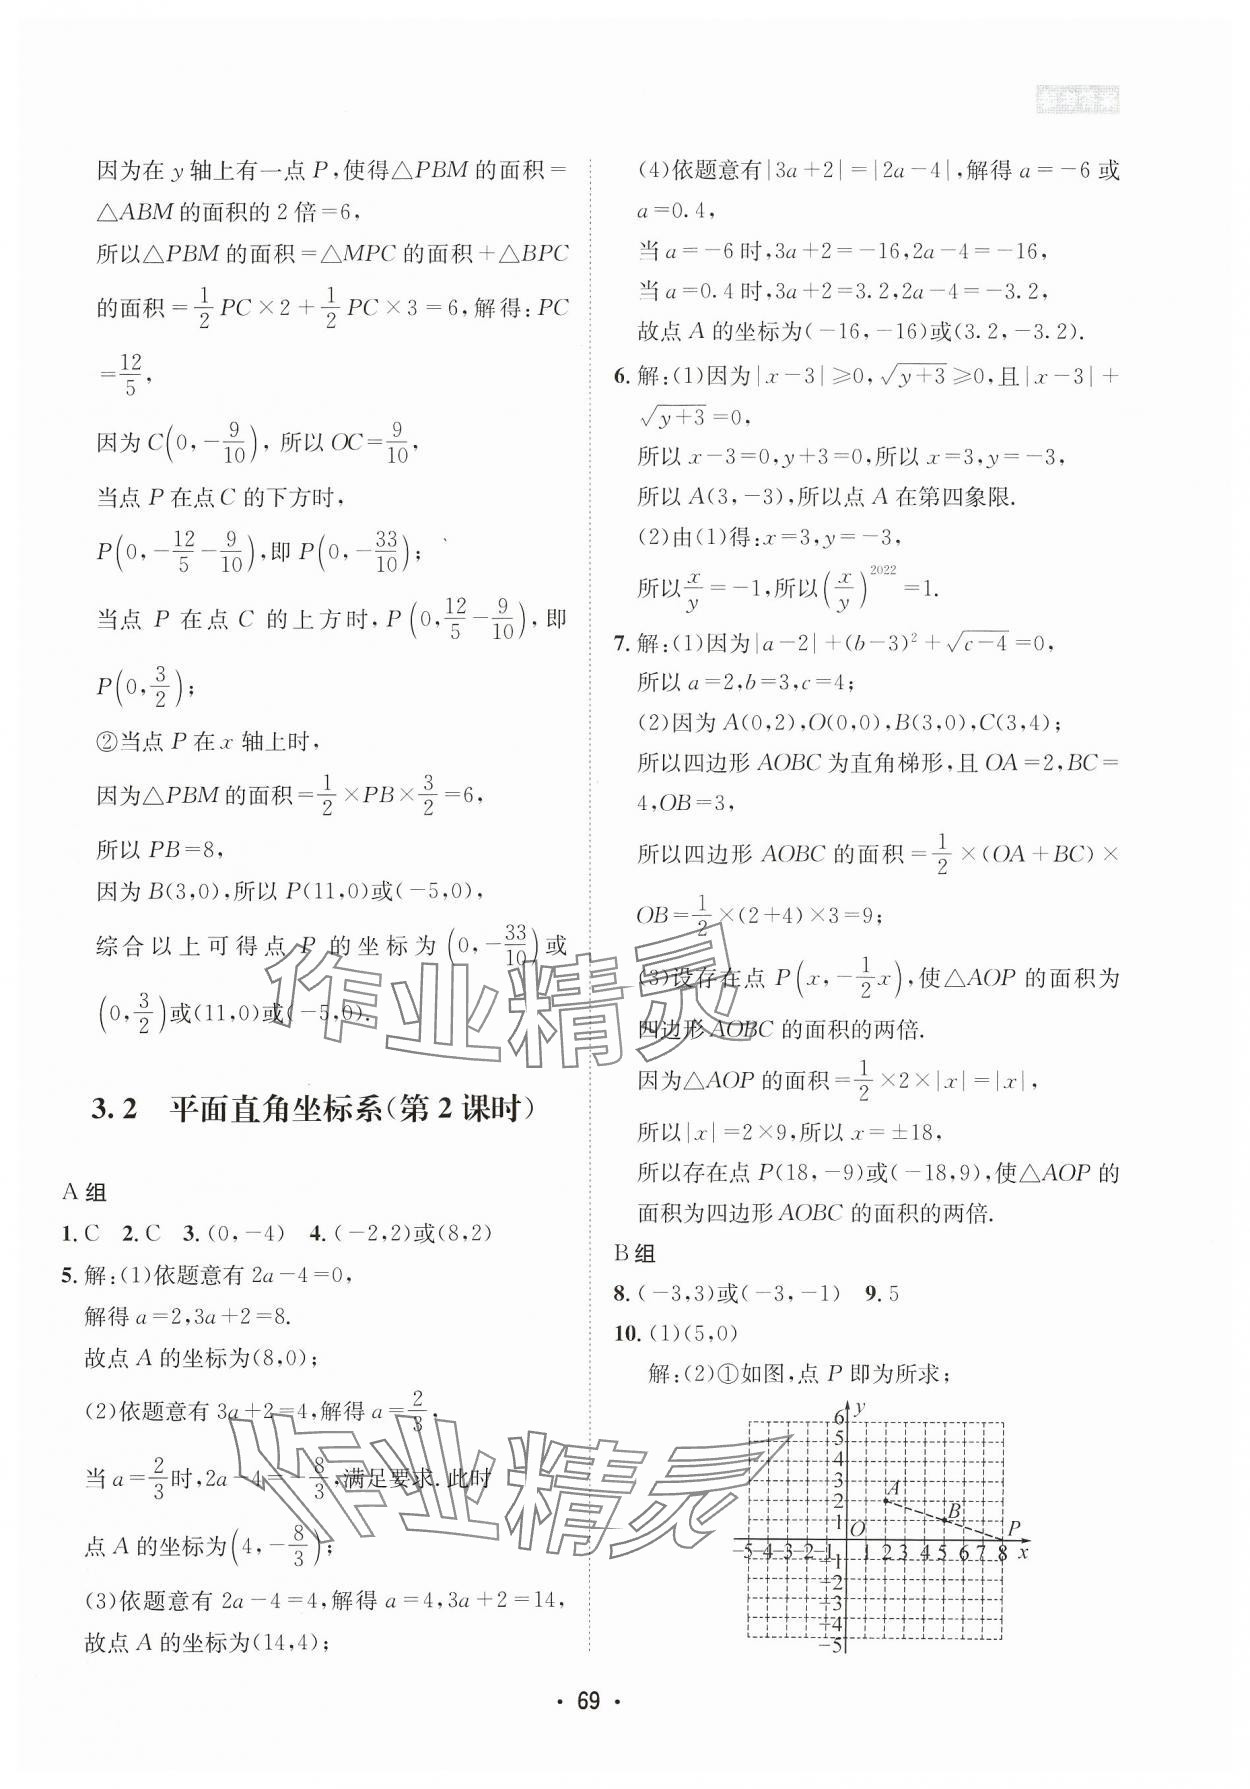 参考答案
因为在 y 轴上有一点 P,使得△PBM 的面积=
△ABM 的面积的 2 倍=6,
所以△PBM 的面积=△MPC 的面积+△BPC
的面积=1/2 PC×2+1/2 PC×3=6,解得:PC
=12/5,
因为 C(0,-9/10), 所以 OC=9/10,
当点 P 在点 C 的下方时,
P(0,-12/5-9/10),即 P(0,-33/10);
当点 P 在点 C 的上方时,P(0,12/5-9/10),即
P(0,3/2);
②当点 P 在 x 轴上时,
因为△PBM 的面积=1/2×PB×3/2=6,
所以 PB=8,
因为 B(3,0),所以 P(11,0)或(-5,0),
综合以上可得点 P 的坐标为(0,-33/10)或
(0,3/2)或(11,0)或(-5,0).
3.2 平面直角坐标系(第2课时)
A 组
1. C 2. C 3. (0,-4) 4. (-2,2)或(8,2)
5. 解:(1)依题意有 2a-4=0,
解得 a=2,3a+2=8.
故点 A 的坐标为(8,0);
(2)依题意有 3a+2=4,解得 a=2/3,
当 a=2/3时,2a-4=-8/3,满足要求. 此时
点 A 的坐标为(4,-8/3);
(3)依题意有 2a-4=4,解得 a=4,3a+2=14,
故点 A 的坐标为(14,4);
(4)依题意有|3a+2|=|2a-4|,解得 a=-6 或
a=0.4,
当 a=-6 时,3a+2=-16,2a-4=-16,
当 a=0.4 时,3a+2=3.2,2a-4=-3.2,
故点 A 的坐标为(-16,-16)或(3.2,-3.2).
6. 解:(1)因为|x-3|≥0,√(y+3)≥0,且|x-3|+
√(y+3)=0,
所以 x-3=0,y+3=0,所以 x=3,y=-3,
所以 A(3,-3),所以点 A 在第四象限.
(2)由(1)得:x=3,y=-3,
所以x/y=-1,所以(x/y)^2022=1.
7. 解:(1)因为|a-2|+(b-3)²+√(c-4)=0,
所以 a=2,b=3,c=4;
(2)因为 A(0,2),O(0,0),B(3,0),C(3,4);
所以四边形 AOBC 为直角梯形,且 OA=2,BC=
4,OB=3,
所以四边形 AOBC 的面积=1/2×(OA+BC)×
OB=1/2×(2+4)×3=9;
(3)设存在点 P(x,-1/2x),使△AOP 的面积为
四边形 AOBC 的面积的两倍.
因为△AOP 的面积=1/2×2×|x|=|x|,
所以|x|=2×9,所以 x=±18,
所以存在点 P(18,-9)或(-18,9),使△AOP 的
面积为四边形 AOBC 的面积的两倍.
B 组
8. (-3,3)或(-3,-1) 9. 5
10. (1)(5,0)
解:(2)①如图,点 P 即为所求;
y
6
5
4
3
2
1
A
B
P
O
-5-4-3-2-1 1 2 3 4 5 6 7 8 x
-1
-2
-3
-4
-5
· 69 ·
作业精灵
作业精灵